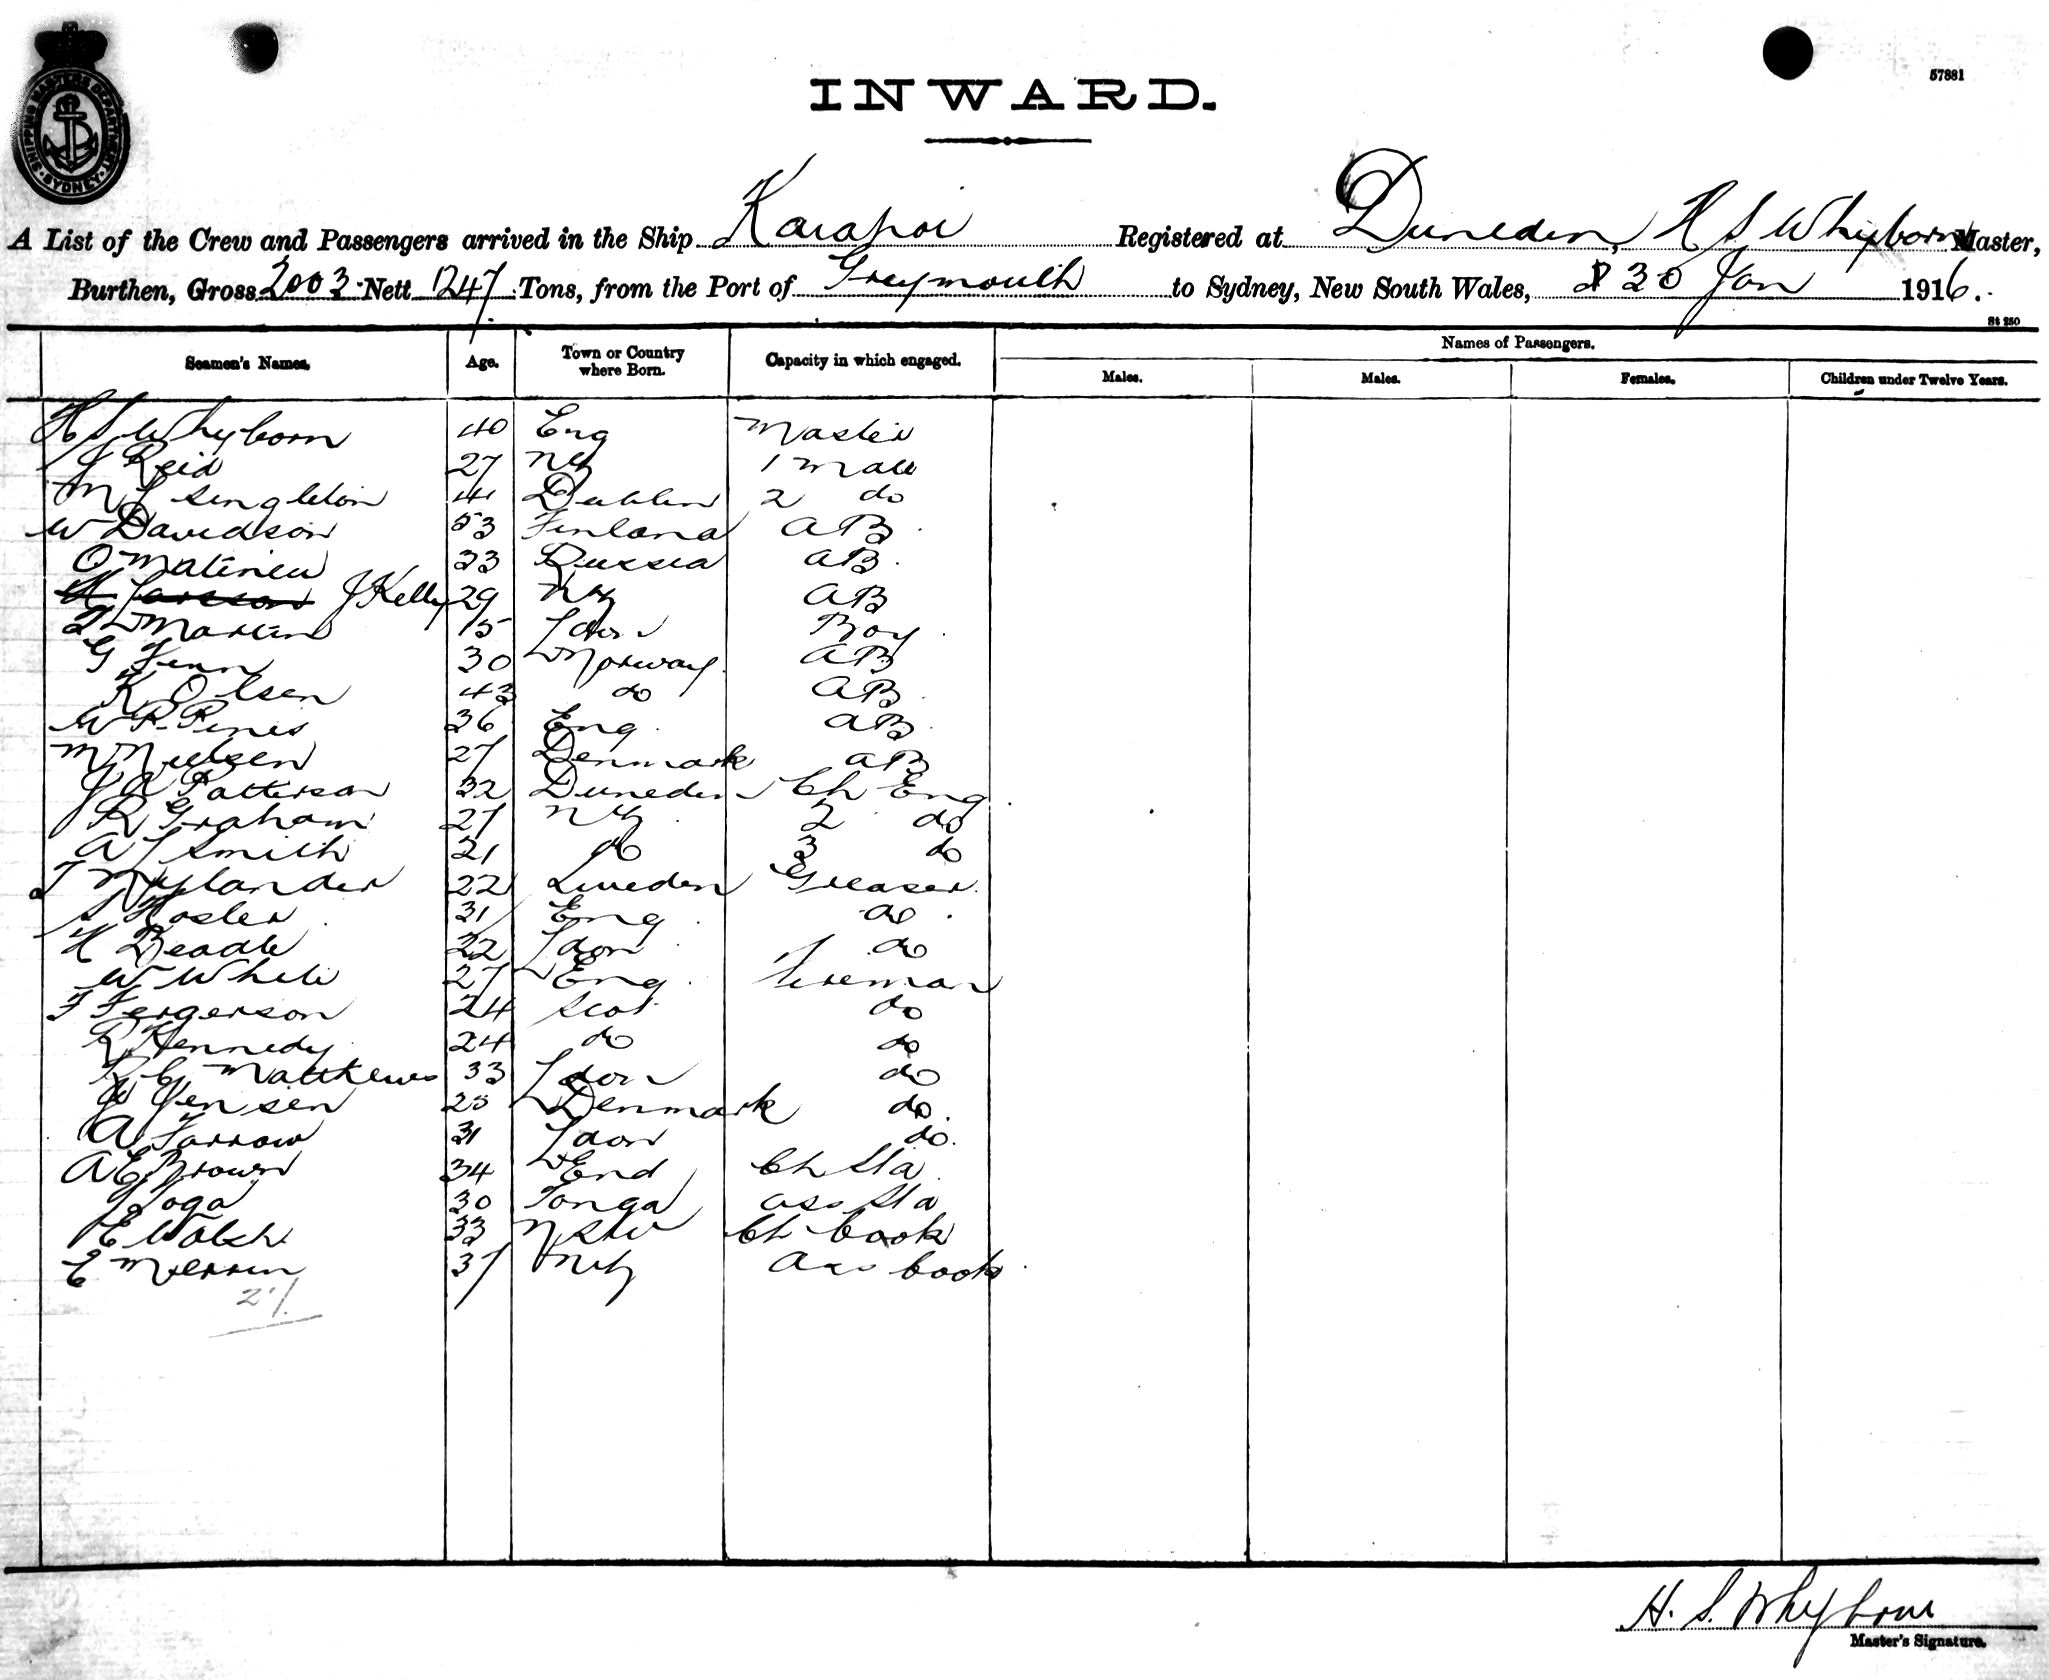 SHIPPING MASTERS DEPARTMENT
SYDNEY
57881
INWARD.
A List of the Crew and Passengers arrived in the Ship Kaiapoi Registered at Duneden, H S Whyborn Master,
Burthen, Gross 2003 Nett 1247 Tons, from the Port of Greymouth to Sydney, New South Wales, 30 Jan 1916.
St 250
Seamen's Names. Age. Town or Country where Born. Capacity in which engaged. Names of Passengers.
Males. Males. Females. Children under Twelve Years.
H S Whyborn 40 Eng Master
J Reid 27 NZ 1 Mate
M J Singleton 41 Dublin 2 do
W Davidson 53 Finland AB
O Matinen 33 Russia AB
H Larsson J Kelly 29 NZ AB
Martin 15 Ldon Boy
G Finn 30 Norway AB
K Olsen 43 do AB
W R Pines 36 Eng AB
M Nielsen 27 Denmark AB
J A Patterson 32 Duneden Ch Eng
R Graham 27 NZ 2 do
A J Smith 21 do 3 do
J Nylander 22 Sweden Greaser
S Hosler 31 Eng do
H Beadle 22 Ldon do
W White 27 Eng Fireman
F Fergerson 24 Scot do
R Kennedy 24 do do
R C Matthews 33 Ldon do
Jensen 25 Denmark do
A Farrow 31 Ldon do
A E Brown 34 End Ch Sta
Toga 30 Tonga ass Sta
E Walsh 33 NSW Ch Cook
E Merrin 37 NZ Ass Cook
27
H. S. Whyborn
Master's Signature.